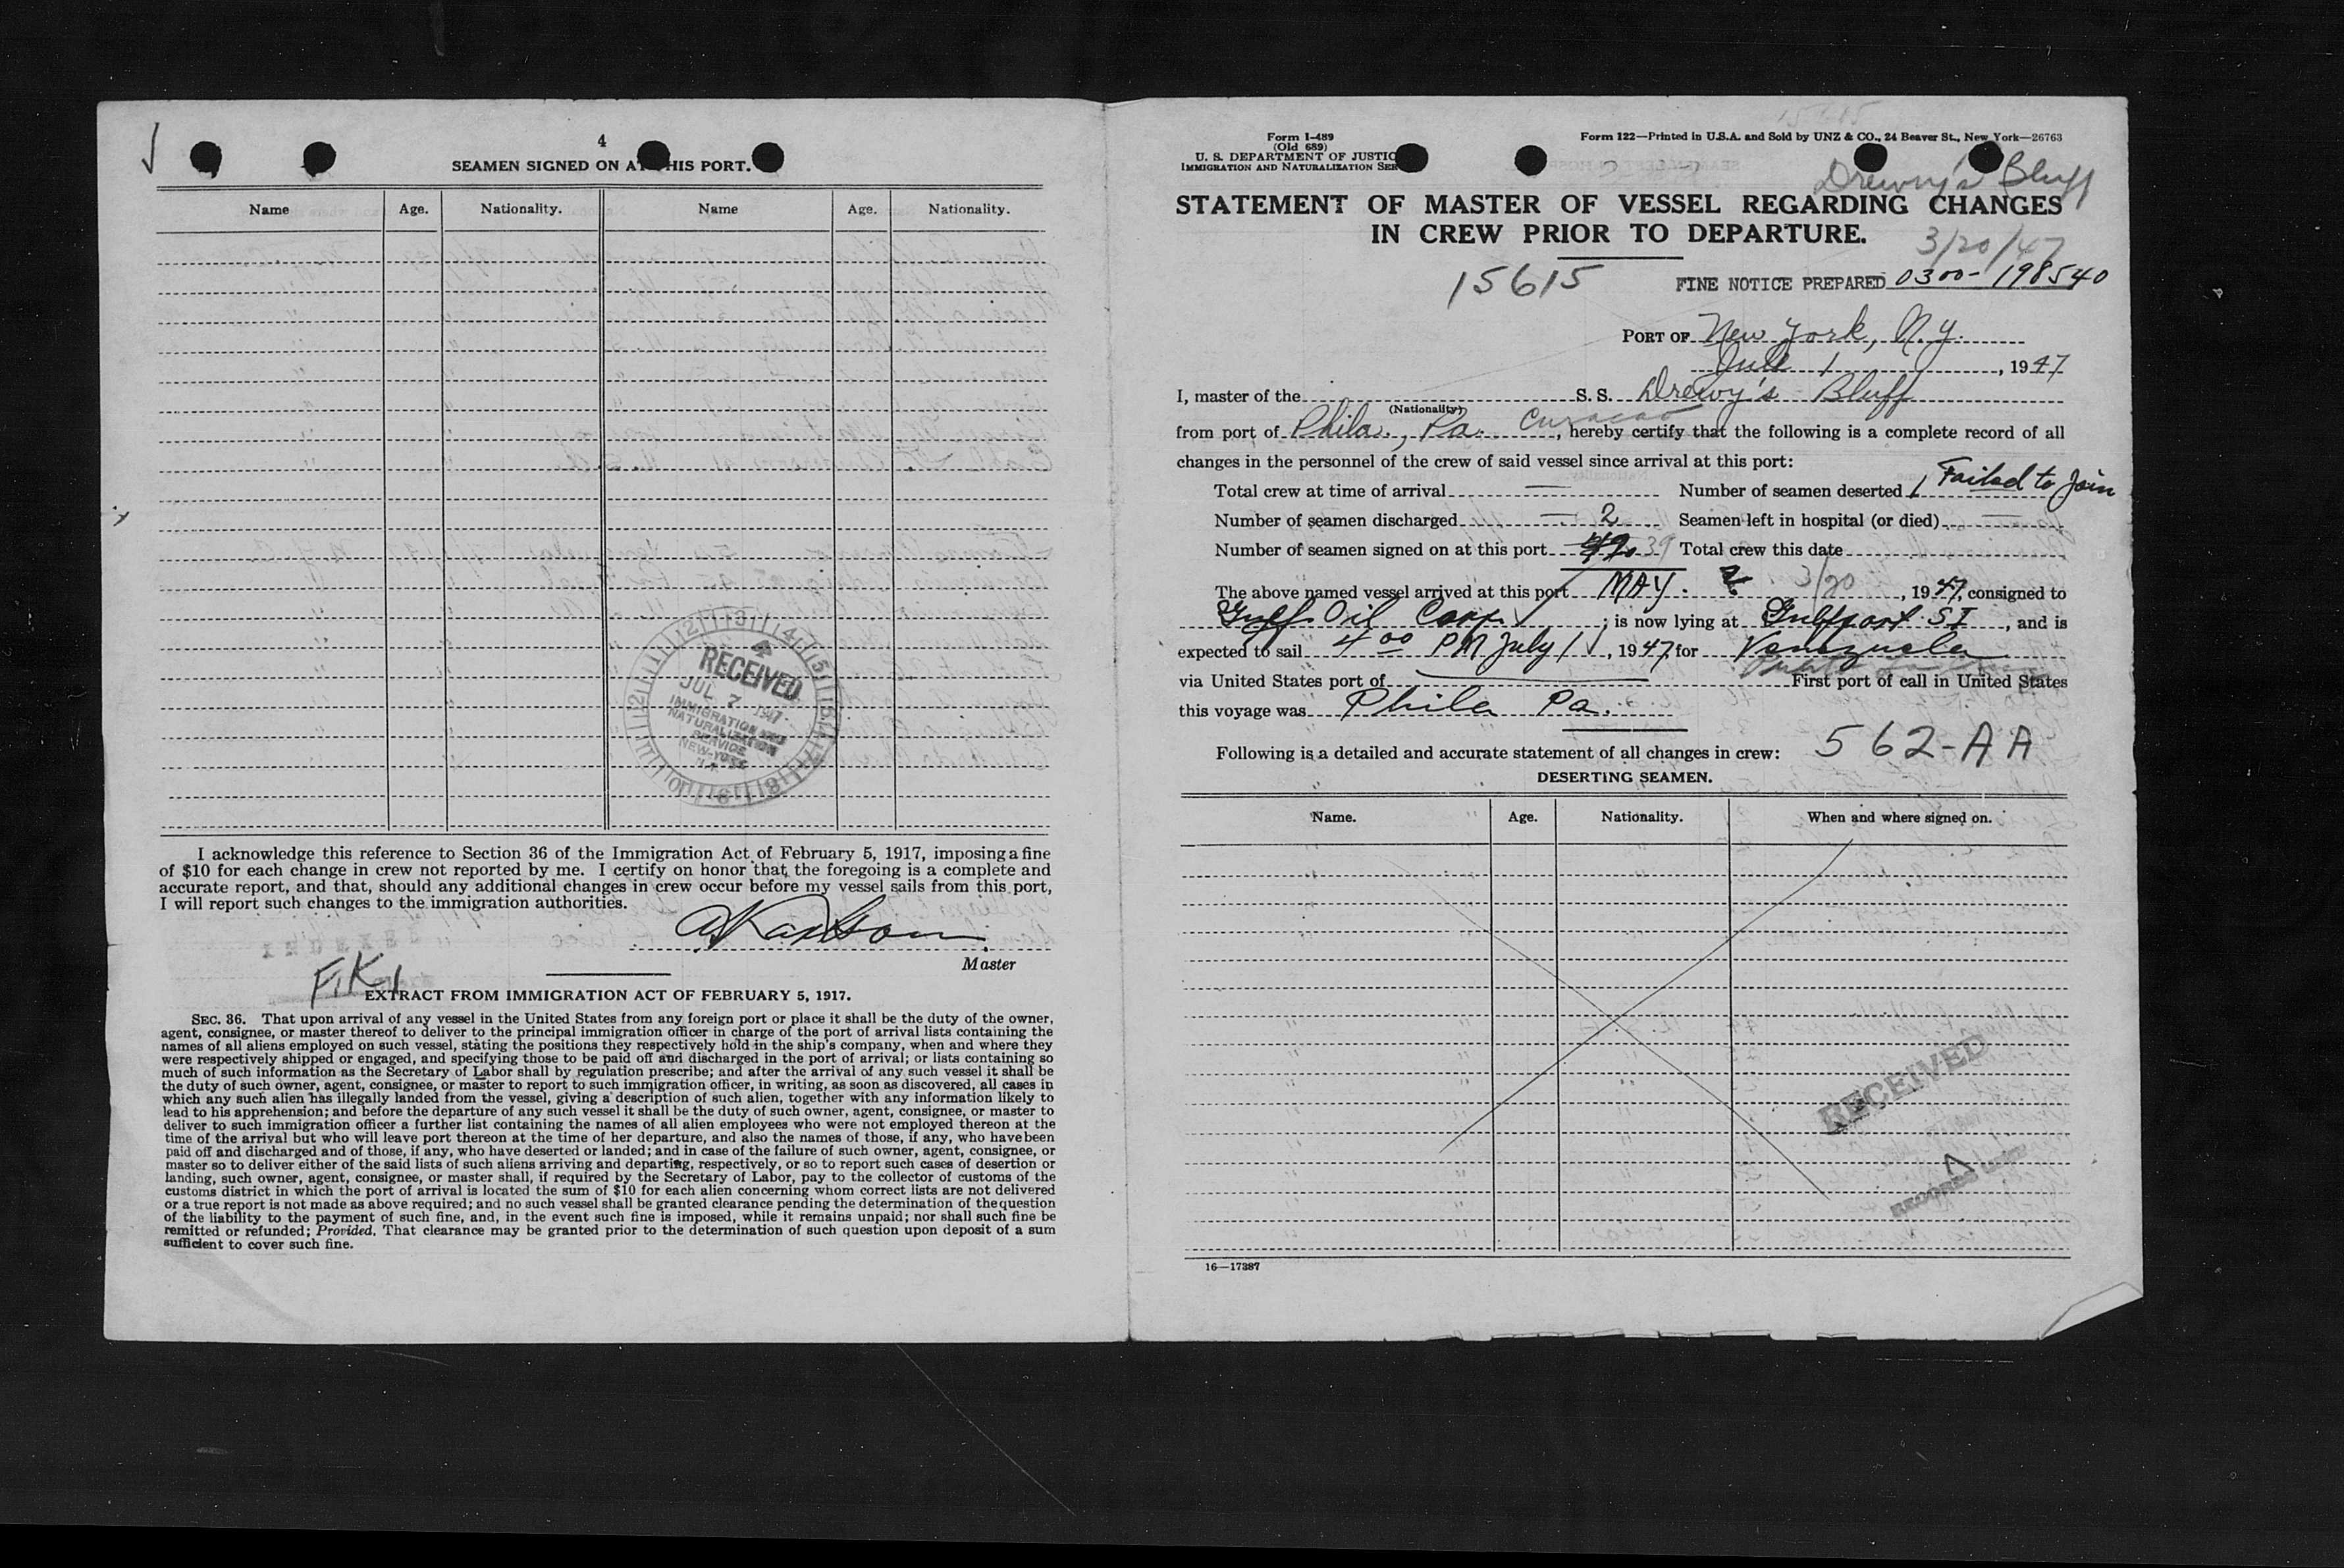 4
SEAMEN SIGNED ON AT THIS PORT.
Name Age. Nationality. Name Age. Nationality.
RECEIVED
JUL 7 1947
IMMIGRATION AND
NATURALIZATION
SERVICE
NEW YORK
I acknowledge this reference to Section 36 of the Immigration Act of February 5, 1917, imposing a fine
of $10 for each change in crew not reported by me. I certify on honor that, the foregoing is a complete and
accurate report, and that, should any additional changes in crew occur before my vessel sails from this port,
I will report such changes to the immigration authorities.
Master
INDEXED
F.K.
EXTRACT FROM IMMIGRATION ACT OF FEBRUARY 5, 1917.
SEC. 36. That upon arrival of any vessel in the United States from any foreign port or place it shall be the duty of the owner,
agent, consignee, or master thereof to deliver to the principal immigration officer in charge of the port of arrival lists containing the
names of all aliens employed on such vessel, stating the positions they respectively hold in the ship's company, when and where they
were respectively shipped or engaged, and specifying those to be paid off and discharged in the port of arrival; or lists containing so
much of such information as the Secretary of Labor shall by regulation prescribe; and after the arrival of any such vessel it shall be
the duty of such owner, agent, consignee, or master to report to such immigration officer, in writing, as soon as discovered, all cases in
which any such alien has illegally landed from the vessel, giving a description of such alien, together with any information likely to
lead to his apprehension; and before the departure of any such vessel it shall be the duty of such owner, agent, consignee, or master to
deliver to such immigration officer a further list containing the names of all alien employees who were not employed thereon at the
time of the arrival but who will leave port thereon at the time of her departure, and also the names of those, if any, who have been
paid off and discharged and of those, if any, who have deserted or landed; and in case of the failure of such owner, agent, consignee, or
master so to deliver either of the said lists of such aliens arriving and departing, respectively, or so to report such cases of desertion or
landing, such owner, agent, consignee, or master shall, if required by the Secretary of Labor, pay to the collector of customs of the
customs district in which the port of arrival is located the sum of $10 for each alien concerning whom correct lists are not delivered
or a true report is not made as above required; and no such vessel shall be granted clearance pending the determination of the question
of the liability to the payment of such fine, and, in the event such fine is imposed, while it remains unpaid; nor shall such fine be
remitted or refunded; Provided, That clearance may be granted prior to the determination of such question upon deposit of a sum
sufficient to cover such fine.
Form I-489
(Old 689)
U. S. DEPARTMENT OF JUSTIC
IMMIGRATION AND NATURALIZATION SER
Form 122—Printed in U.S.A. and Sold by UNZ & CO., 24 Beaver St., New York—26763
Drewry's Bluff
STATEMENT OF MASTER OF VESSEL REGARDING CHANGES
IN CREW PRIOR TO DEPARTURE.
3/20/47
15615
FINE NOTICE PREPARED 0300-198540
PORT OF New York, N.Y.
July 1, 1947
I, master of the S. S. Drewy's Bluff
(Nationality)
from port of Phila., Pa. Curacao, hereby certify that the following is a complete record of all
changes in the personnel of the crew of said vessel since arrival at this port:
Total crew at time of arrival — Number of seamen deserted 1 Failed to Join
Number of seamen discharged — 2 Seamen left in hospital (or died) —
Number of seamen signed on at this port 39 Total crew this date
The above named vessel arrived at this port MAY. 2 3/20, 1947, consigned to
Gulf Oil Corp.; is now lying at Gulfport S I, and is
expected to sail 4 00 PM July 1, 1947, for Venezuela
via United States port of First port of call in United States
this voyage was Phila Pa.
Following is a detailed and accurate statement of all changes in crew: 562-AA
DESERTING SEAMEN.
Name. Age. Nationality. When and where signed on.
RECEIVED
16—17387